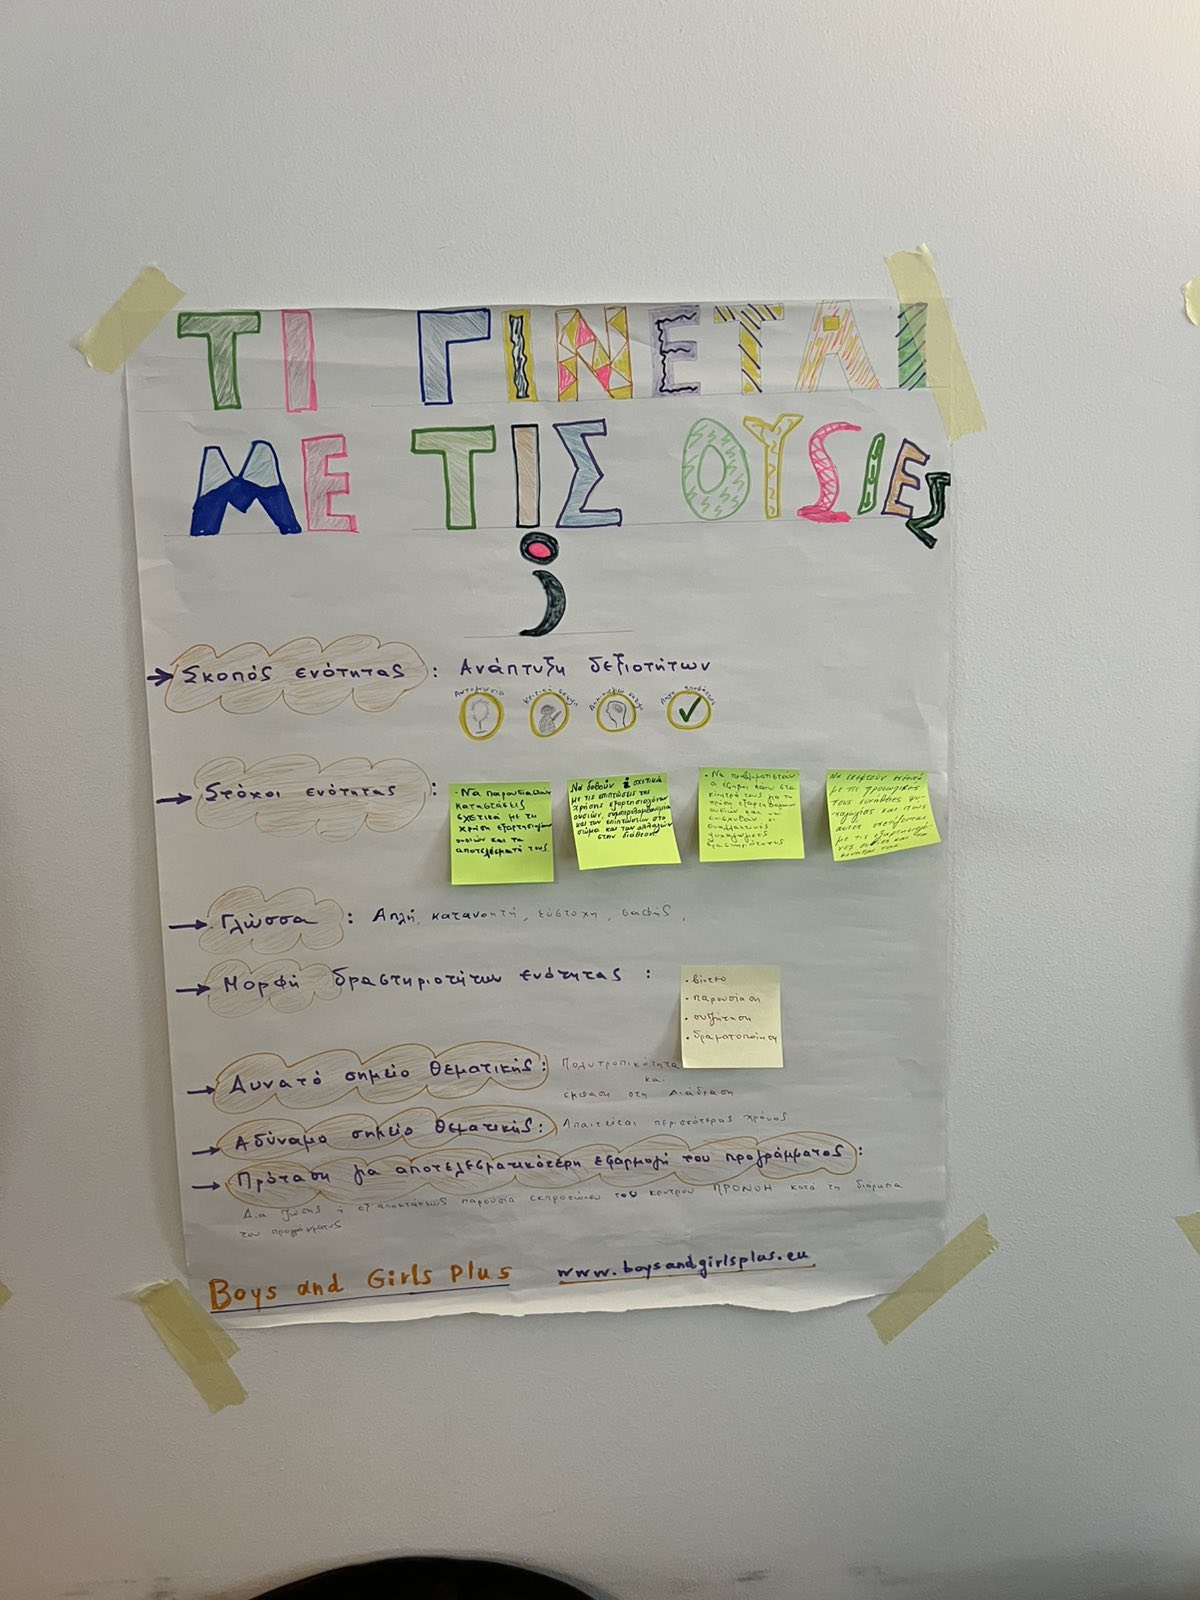 ΤΙ ΓΙΝΕΤΑΙ
ΜΕ ΤΙΣ ΟΥΣΙΕς
;
Σκοπός ενότητας : Ανάπτυξη δεξιοτήτων
Στόχοι ενότητας :
· Να παρουσιαστούν
καταστάσεις
σχετικά με τη
χρήση εξαρτησιογόνων
ουσιών και τα
αποτελέσματά τους
Να δοθούν σχετικά
με τις επιπτώσεις της
χρήσης εξαρτησιογόνων
ουσιών, συμπεριλαμβανομένων
και των επιπτώσεων στο
σώμα και των αλλαγών
στην διάθεση
· Να προβληματιστούν
οι έφηβοι πάνω στα
κίνητρά τους για τη
χρήση εξαρτησιογόνων
ουσιών και να
ενισχυθούν οι
εναλλακτικές
δραστηριότητες
Να σκεφτούν κριτικά
με τις
τους συνήθεις
και πως
αυτές σχετίζονται
με τις εξαρτησιογό-
νες ουσίες και τα
κίνητρά τους
Γλώσσα : Απλή, κατανοητή, εύστοχη, σαφής,
Μορφή δραστηριοτήτων ενότητας :
· βίντεο
· παρουσίαση
· συζήτηση
· δραματοποίηση
Δυνατό σημείο θεματικής : Πολυτροπικότητα
και
έμφαση στη Διάδραση
Αδύναμο σημείο θεματικής : Απαιτείται περισσότερος χρόνος
Πρόταση για αποτελεσματικότερη εφαρμογή του προγράμματος :
Δια ζώσης ή εξ αποστάσεως παρουσία εκπροσώπου του κέντρου ΠΡΟΝΟΗ κατά τη διάρκεια
του προγράμματος
Boys and Girls Plus www.boysandgirlsplus.eu